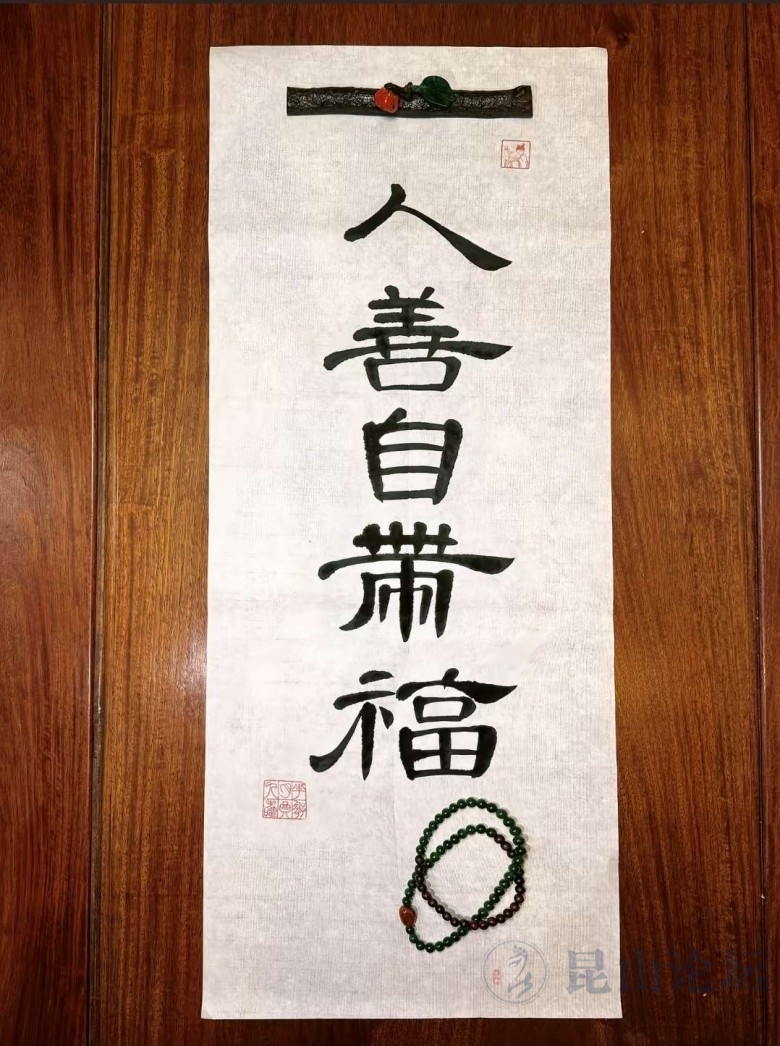 人善自帶福
昆山论坛